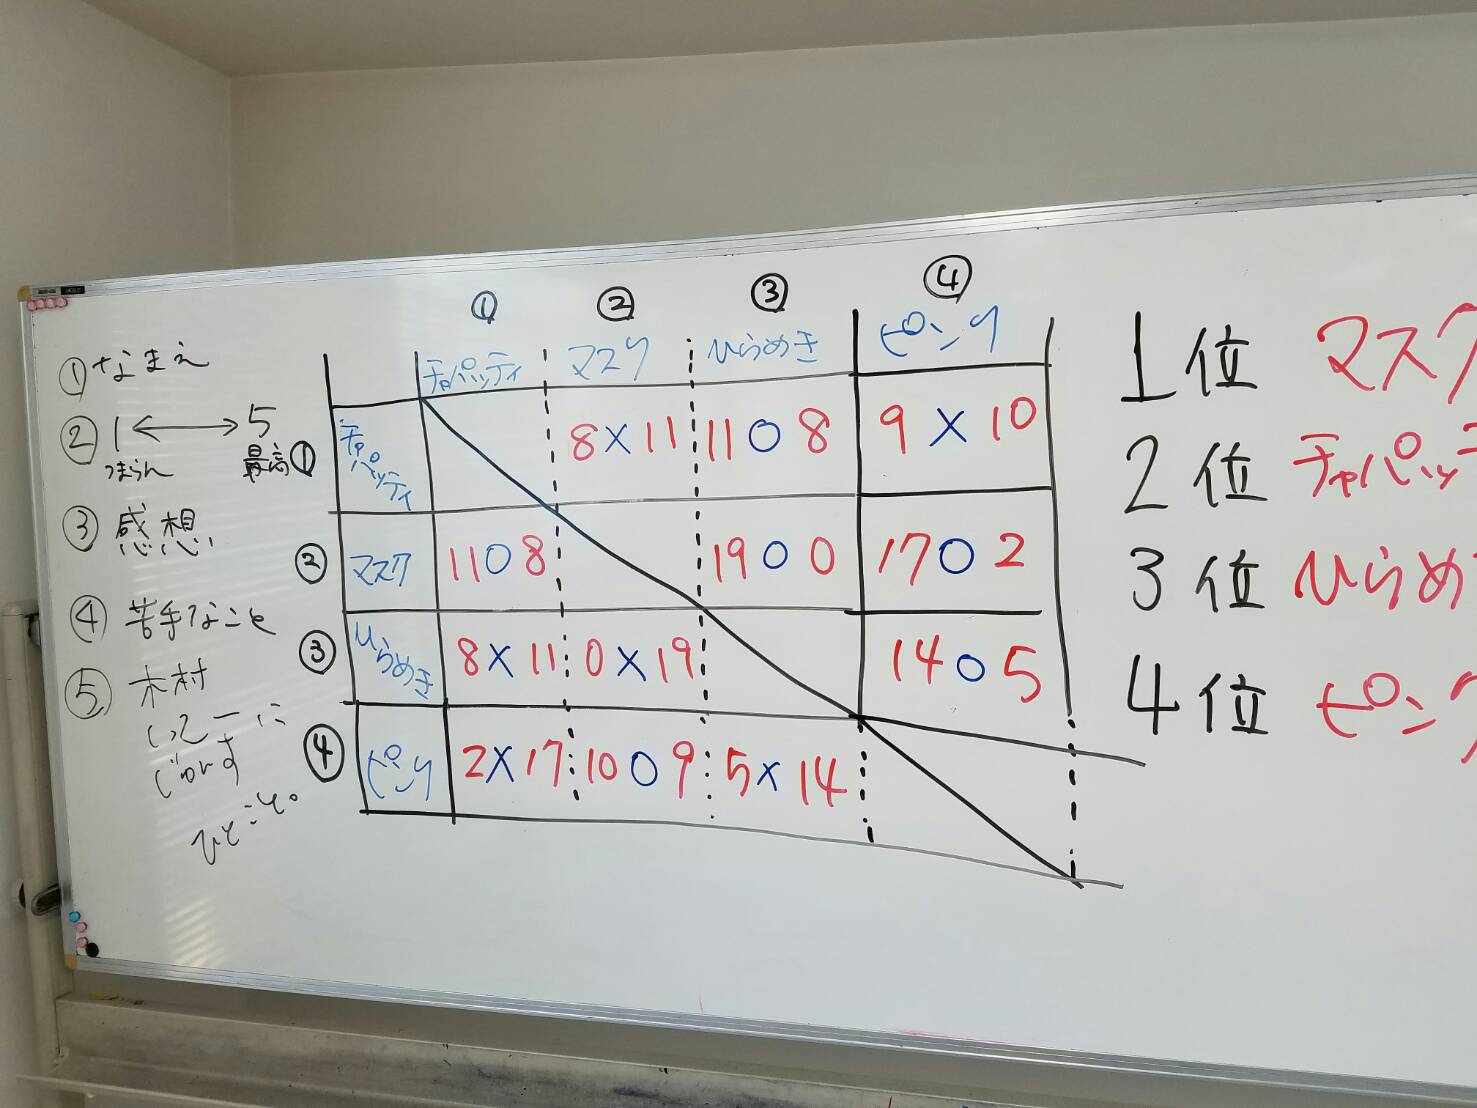 ① なまえ
② 1 ←→ 5
つまらん 最高
③ 感想
④ 苦手なこと
⑤ 木村
ひとこと。
① ② ③ ④
チャパッティ マスク ひらめき ピンク
① チャパッティ 8 × 11 11 ○ 8 9 × 10
② マスク 11 ○ 8 19 ○ 0 17 ○ 2
③ ひらめき 8 × 11 0 × 19 14 ○ 5
④ ピンク 2 × 17 10 ○ 9 5 × 14
1位 マスク
2位 チャパッテ
3位 ひらめ
4位 ピンク